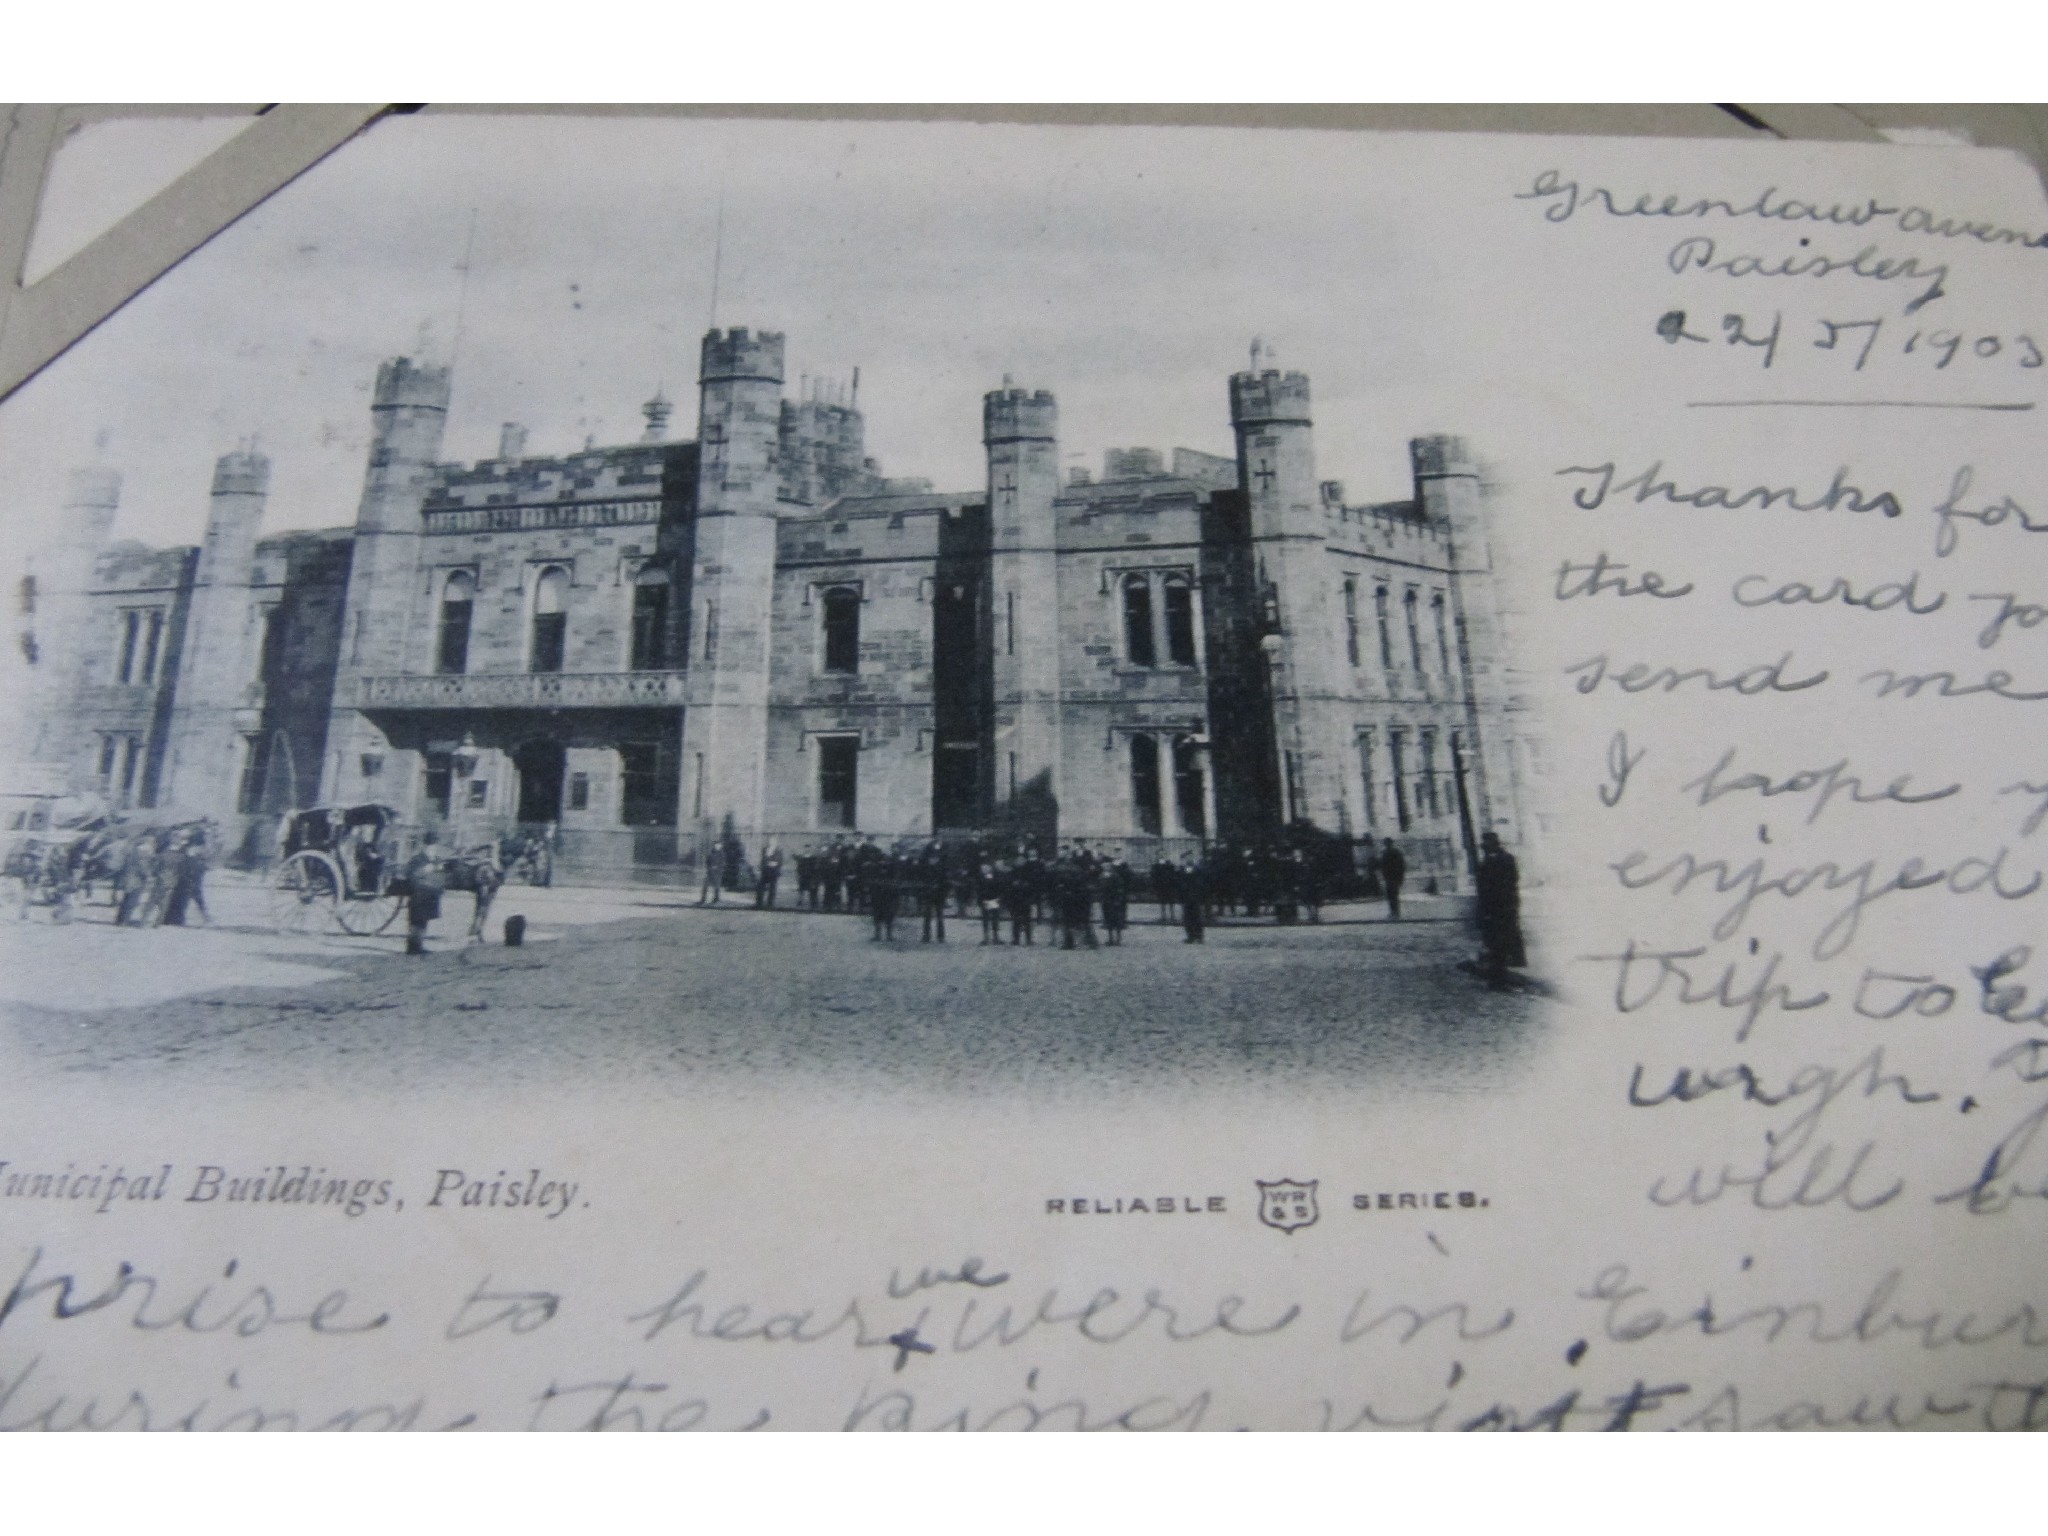 Greenlaw aven
Paisley
22/5/1903
Thanks for
the card yo
send me
I hope y
enjoyed
trip to E
urgh.
will be
unicipal Buildings, Paisley.
RELIABLE WR & S SERIES.
prise to hear we were in Einbur
during the King visit saw t